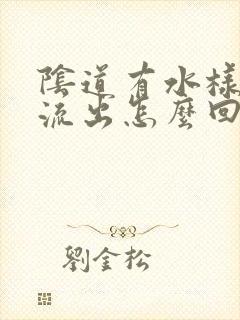 陰道有水樣
流出怎麼回
劉金松